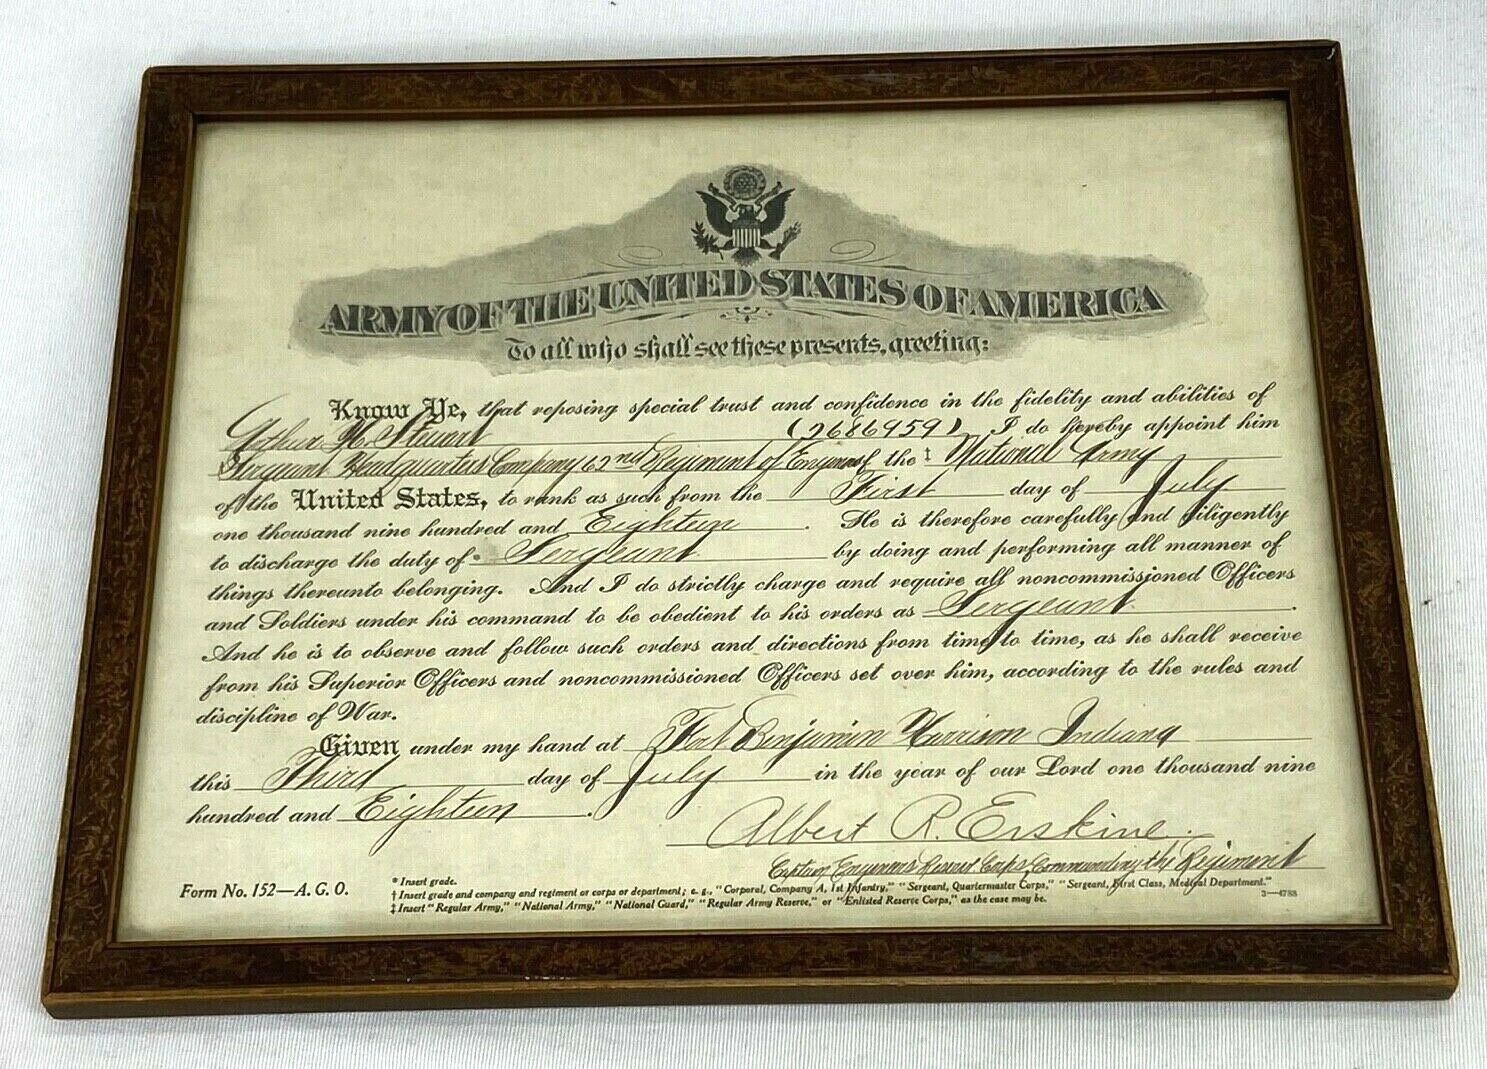 ARMY OF THE UNITED STATES OF AMERICA
To all who shall see these presents, greeting:
Know Ye, that reposing special trust and confidence in the fidelity and abilities of
Arthur H. Stewart (2686959), I do hereby appoint him
Sergeant Headquarters Company 62nd Regiment of Engineers of the ‡ National Army
of the United States, to rank as such from the First day of July
one thousand nine hundred and Eighteen. He is therefore carefully and diligently
to discharge the duty of * Sergeant by doing and performing all manner of
things thereunto belonging. And I do strictly charge and require all noncommissioned Officers
and Soldiers under his command to be obedient to his orders as Sergeant.
And he is to observe and follow such orders and directions from time to time, as he shall receive
from his Superior Officers and noncommissioned Officers set over him, according to the rules and
discipline of War.
Given under my hand at Fort Benjamin Harrison Indiana
this Third day of July in the year of our Lord one thousand nine
hundred and Eighteen.
Albert R. Erskine.
Engineers Reserve Corps, Commanding the Regiment
Form No. 152—A. G. O.
* Insert grade.
† Insert grade and company and regiment or corps or department; e. g., "Corporal, Company A, 1st Infantry," "Sergeant, Quartermaster Corps," "Sergeant, First Class, Medical Department."
‡ Insert "Regular Army," "National Army," "National Guard," "Regular Army Reserve," or "Enlisted Reserve Corps," as the case may be.
3—4788